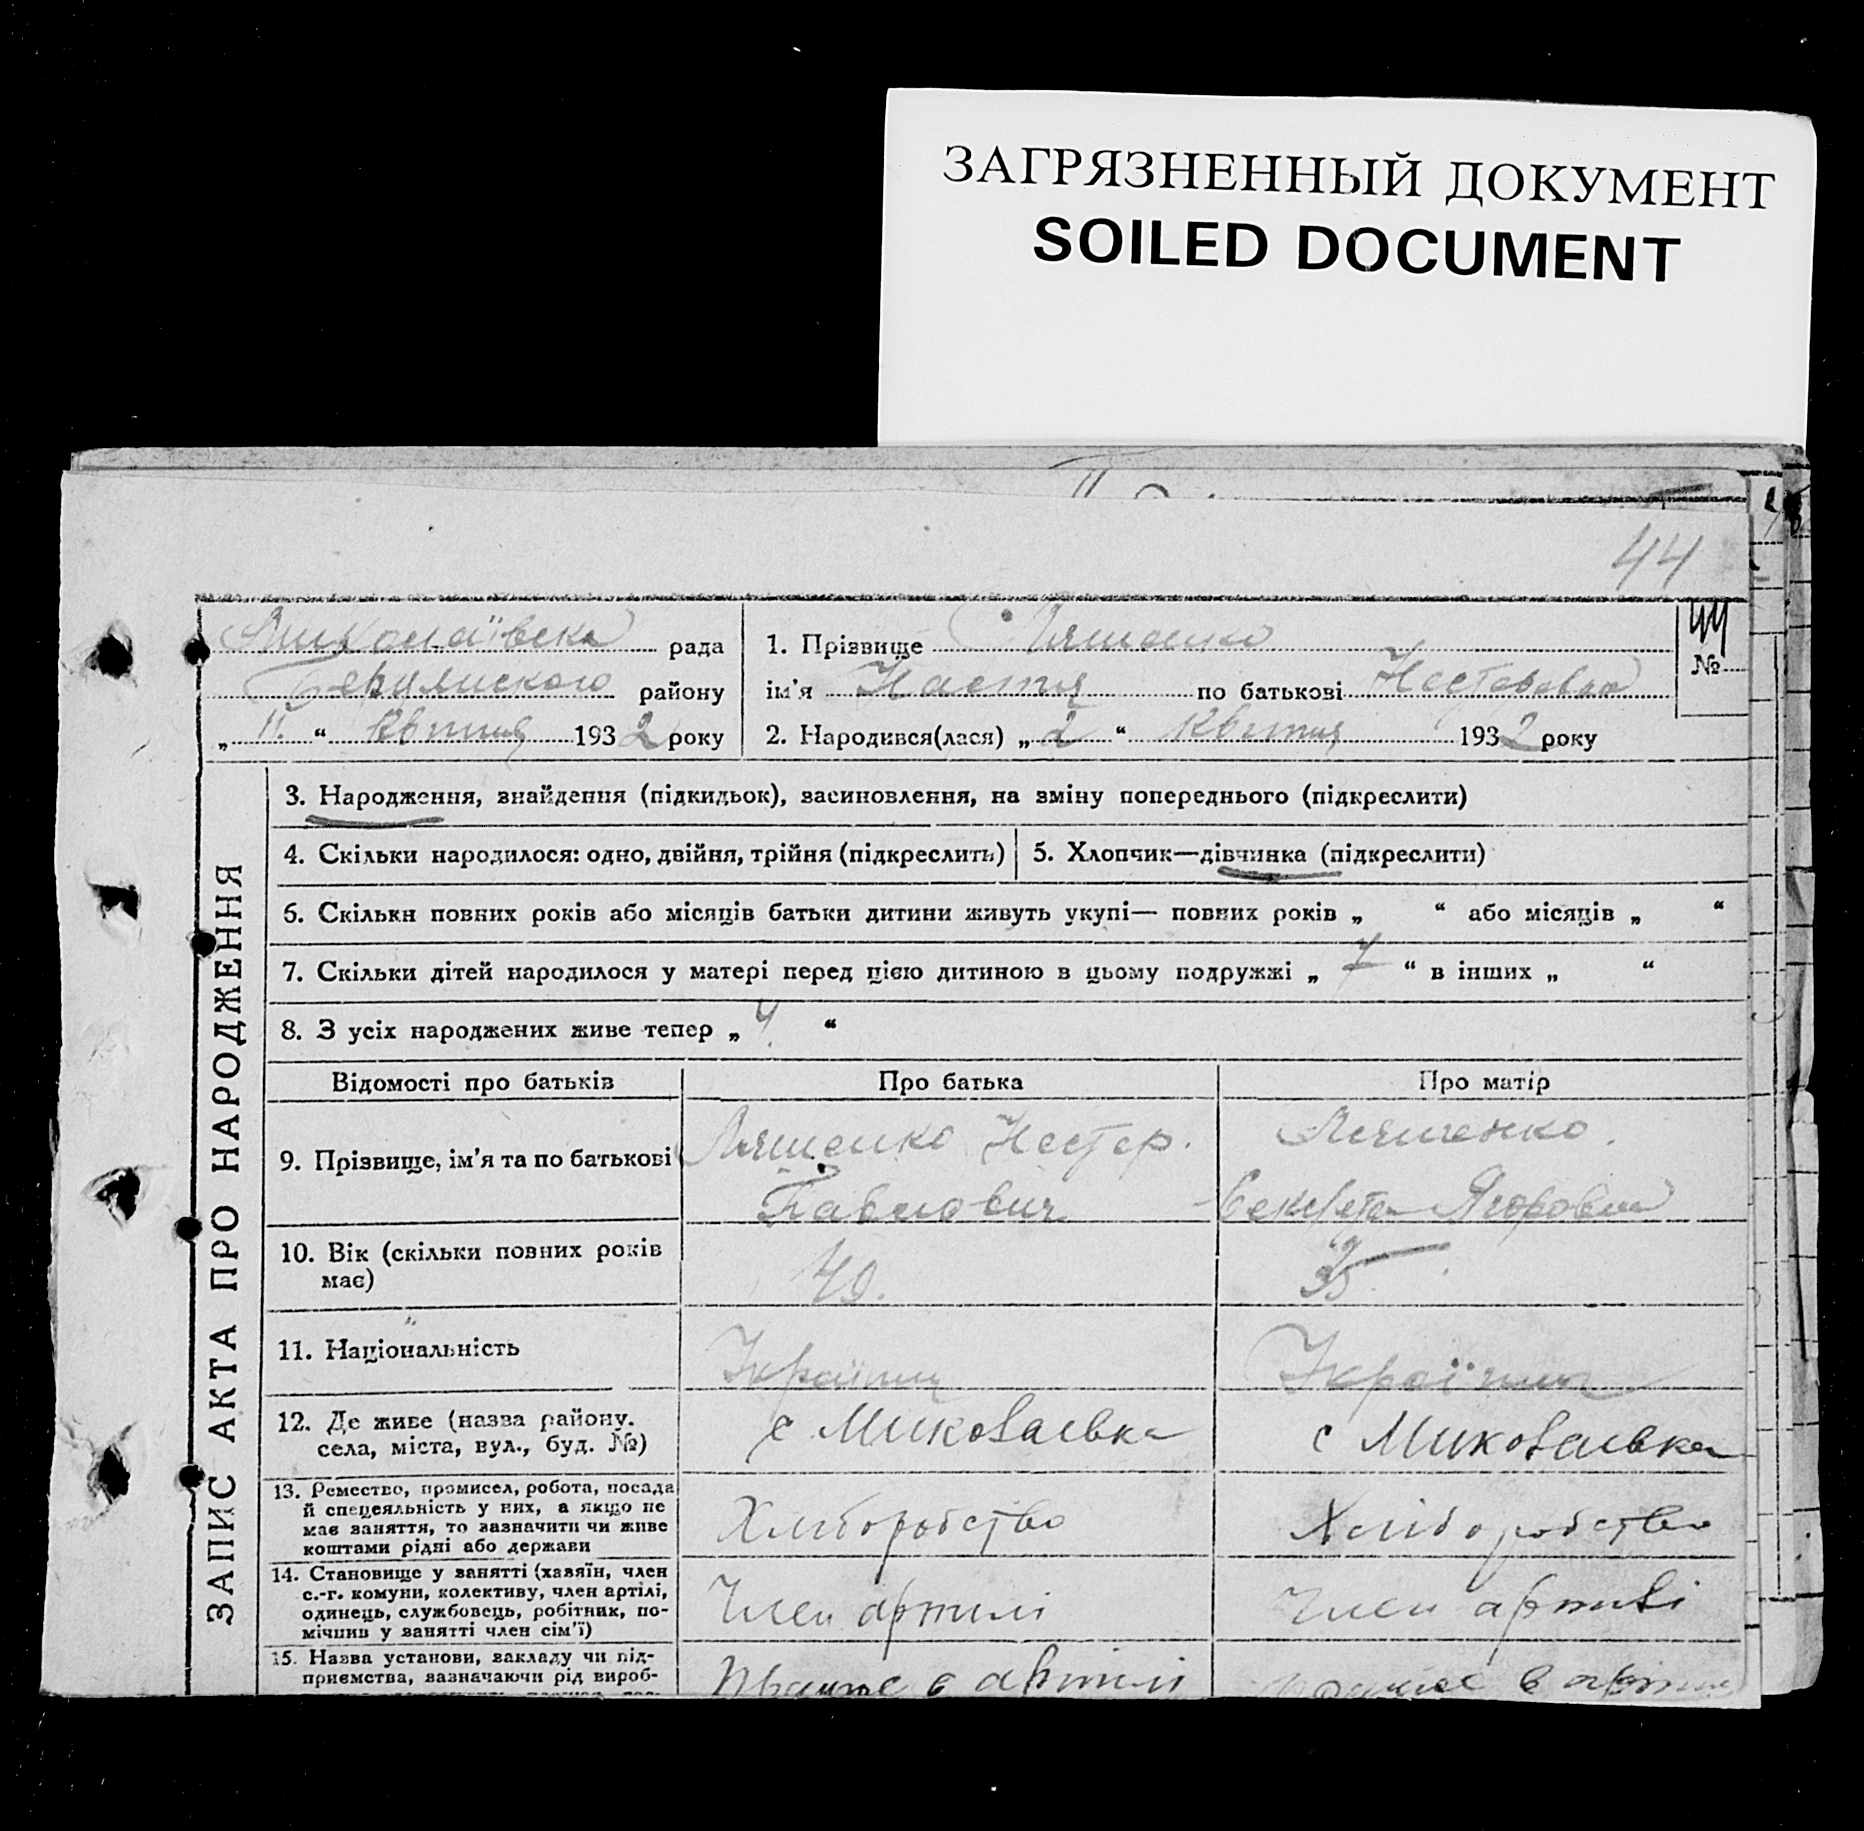 ЗАГРЯЗНЕННЫЙ ДОКУМЕНТ
SOILED DOCUMENT
44
Миколаївська рада
району
„ 11. “ Квітня 1932 року
1. Прізвище Ляшенко
ім'я Настя по батькові Нестеровна
2. Народився(лася) „ 2 “ Квітня 1932 року
№ 44
ЗАПИС АКТА ПРО НАРОДЖЕННЯ
3. Народження, знайдення (підкидьок), засиновлення, на зміну попереднього (підкреслити)
4. Скільки народилося: одно, двійня, трійня (підкреслить)
5. Хлопчик—дівчинка (підкреслити)
6. Скільки повних років або місяців батьки дитини живуть укупі— повних років „ “ або місяців „ “
7. Скільки дітей народилося у матері перед цією дитиною в цьому подружжі „ “ в інших „ “
8. З усіх народжених живе тепер „ 4 “
Відомості про батьків Про батька Про матір
9. Прізвище, ім'я та по батькові
Ляшенко Нестер.
Павлович
Ляшенко.
Ягоровна
10. Вік (скільки повних років
має)
40.
11. Національність
Україн
Україн
12. Де живе (назва району.
села, міста, вул., буд. №)
с Миколаївка
с Миколаївка
13. Ремество, промисел, робота, посада
й спецеяльність у них, а якщо не
має заняття, то зазначити чи живе
коштами рідні або держави
Хліборобство
Хліборобство
14. Становище у занятті (хазяїн, член
с.-г. комуни, колективу, член артілі,
одинець, службовець, робітник, по-
мічник у занятті член сім'ї)
Член артилі
Член артилі
15. Назва установи, закладу чи під-
приємства, зазначаючи рід вироб-
в артилі
в артилі